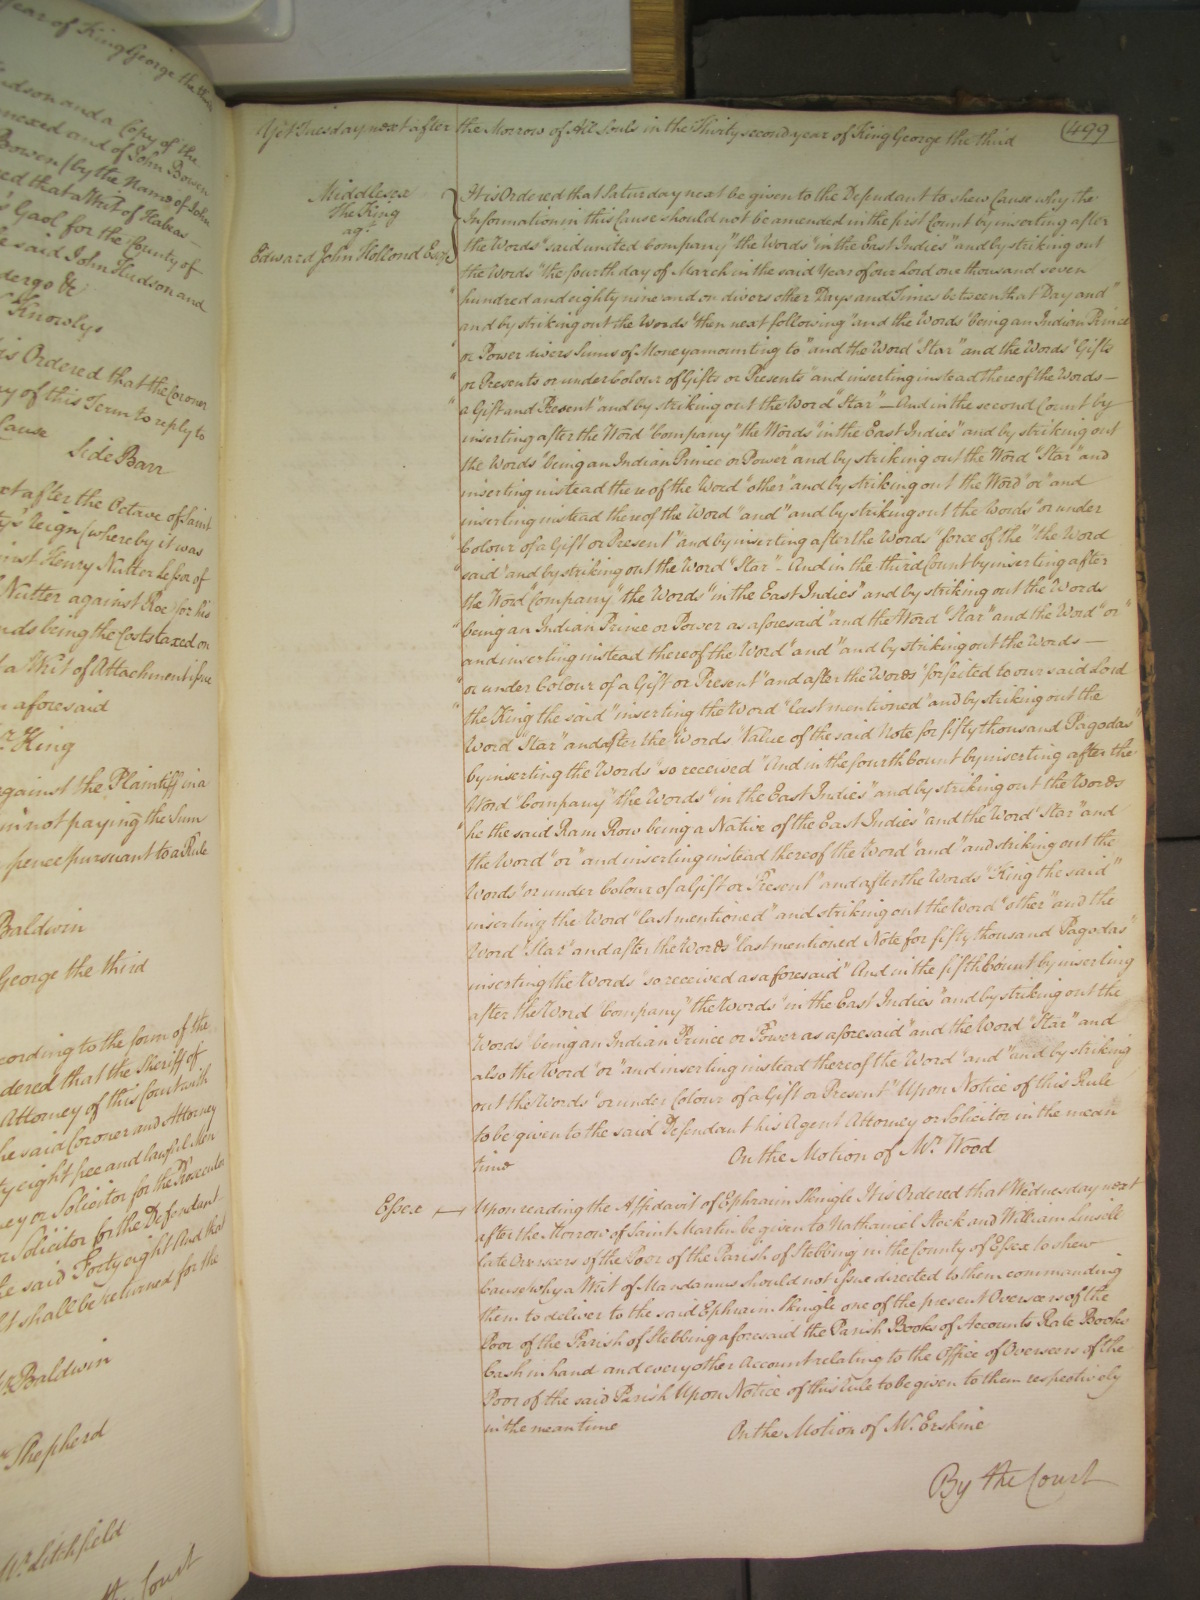 Year of King George the third
Hudson and a Copy of the
annexed and of John Bowen
Bowen (by the Name of John
red that a Writ of Habeas —
's Gaol for the County of
e said John Hudson and
dergo &c
Knowlys
is Ordered that the Coroner
ay of this Term to reply to
Cause
Side Barr
xt after the Octave of Saint
ty's Reign (whereby it was
inst Henry Nutter Lessor of
Nutter against Roe) for his
nds being the Costs taxed on
t a Writ of Attachment issue
aforesaid
Mr King
against the Plaintiff in a
in not paying the Sum
pence pursuant to a Rule
Baldwin
George the third
cording to the form of the
dered that the Sheriff of
Attorney of this Court with
he said Coroner and Attorney
ty eight free and lawful Men
ney or Solicitor for the Prosecutor
or Solicitor for the Defendant
he said Forty eight And that
shall be returned for the
Mr Baldwin
Shepherd
Mr Litchfield
the Court
Yet Tuesday next after the Morrow of All Souls in the Thirty second year of King George the third
499
Middlesex
The King
agt
Edward John Hollond Esqr
It is Ordered that Saturday next be given to the Defendant to shew Cause why the
Information in this Cause should not be amended in the first Count by inserting after
the Words "said united Company" the Words "in the East Indies" and by striking out
the Words "the fourth day of March in the said Year of our Lord one thousand seven
" hundred and eighty nine and on divers other Days and Times between that Day and"
and by striking out the Words "then next following" and the Words "being an Indian Prince
" or Power divers Sums of Money amounting to" and the Word "Star" and the Words "Gifts
" or Presents or under Colour of Gifts or Presents" and inserting instead thereof the Words —
" a Gift and Present" and by striking out the Word "Star" — And in the second Count by
inserting after the Word "Company" the Words "in the East Indies" and by striking out
the Words "being an Indian Prince or Power" and by striking out the Word "Star" and
inserting instead thereof the Word "other" and by striking out the Word "or" and
inserting instead thereof the Word "and" and by striking out the Words "or under
" Colour of a Gift or Present" and by inserting after the Words "force of the" the Word
" said" and by striking out the Word "Star" — And in the third Count by inserting after
the Word "Company" the Words "in the East Indies" and by striking out the Words
" being an Indian Prince or Power as aforesaid" and the Word "Star" and the Word "or"
and inserting instead thereof the Word "and" and by striking out the Words —
" or under Colour of a Gift or Present" and after the Words "forfeited to our said Lord
" the King the said" inserting the Word "last mentioned" and by striking out the
Word "Star" and after the Words "Value of the said Note for fifty thousand Pagodas"
by inserting the Words "so received" And in the fourth Count by inserting after the
Word "Company" the Words "in the East Indies" and by striking out the Words
" he the said Ram Row being a Native of the East Indies" and the Word "Star" and
the Word "or" and inserting instead thereof the Word "and" and striking out the
Words "or under Colour of a Gift or Present" and after the Words "King the said"
inserting the Word "last mentioned" and striking out the Word "other" and the
Word "Star" and after the Words "last mentioned Note for fifty thousand Pagodas"
inserting the Words "so received as aforesaid" And in the fifth Count by inserting
after the Word "Company" the Words "in the East Indies" and by striking out the
Words "being an Indian Prince or Power as aforesaid" and the Word "Star" and
also the Word "or" and inserting instead thereof the Word "and" and by striking
out the Words "or under Colour of a Gift or Present" Upon Notice of this Rule
to be given to the said Defendant his Agent Attorney or Solicitor in the mean
time On the Motion of Mr. Wood
Essex Upon reading the Affidavit of Ephraim Skingle It is Ordered that Wednesday next
after the Morrow of Saint Martin be given to Nathaniel Stock and William Linsell
late Overseers of the Poor of the Parish of Stebbing in the County of Essex to shew
Cause why a Writ of Mandamus should not issue directed to them commanding
them to deliver to the said Ephraim Skingle one of the present Overseers of the
Poor of the Parish of Stebbing aforesaid the Parish Books of Accounts Rate Books
Cash in hand and every other Account relating to the Office of Overseers of the
Poor of the said Parish Upon Notice of this Rule to be given to them respectively
in the mean time On the Motion of Mr. Erskine
By the Court